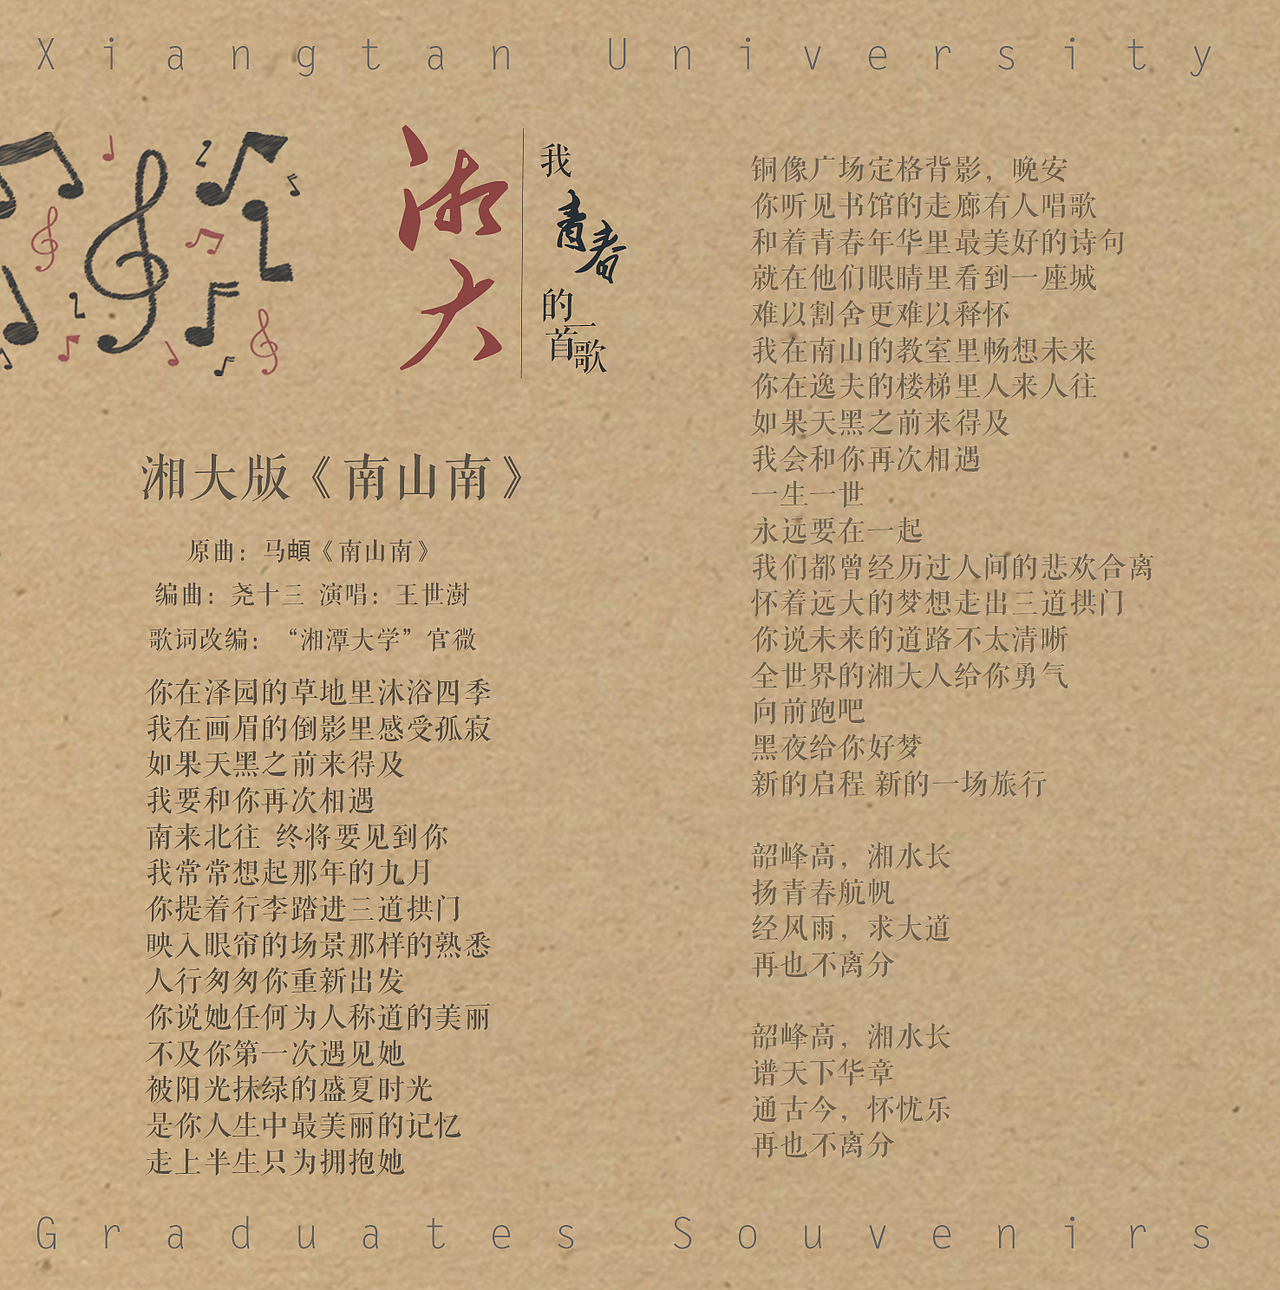 Xiangtan University
湘大
我
青春
的
一
首
歌
湘大版《南山南》
原曲：马頔《南山南》
编曲：尧十三 演唱：王世澍
歌词改编：“湘潭大学”官微
你在泽园的草地里沐浴四季
我在画眉的倒影里感受孤寂
如果天黑之前来得及
我要和你再次相遇
南来北往 终将要见到你
我常常想起那年的九月
你提着行李踏进三道拱门
映入眼帘的场景那样的熟悉
人行匆匆你重新出发
你说她任何为人称道的美丽
不及你第一次遇见她
被阳光抹绿的盛夏时光
是你人生中最美丽的记忆
走上半生只为拥抱她
铜像广场定格背影，晚安
你听见书馆的走廊有人唱歌
和着青春年华里最美好的诗句
就在他们眼睛里看到一座城
难以割舍更难以释怀
我在南山的教室里畅想未来
你在逸夫的楼梯里人来人往
如果天黑之前来得及
我会和你再次相遇
一生一世
永远要在一起
我们都曾经历过人间的悲欢合离
怀着远大的梦想走出三道拱门
你说未来的道路不太清晰
全世界的湘大人给你勇气
向前跑吧
黑夜给你好梦
新的启程 新的一场旅行
韶峰高，湘水长
扬青春航帆
经风雨，求大道
再也不离分
韶峰高，湘水长
谱天下华章
通古今，怀忧乐
再也不离分
Graduates Souvenirs